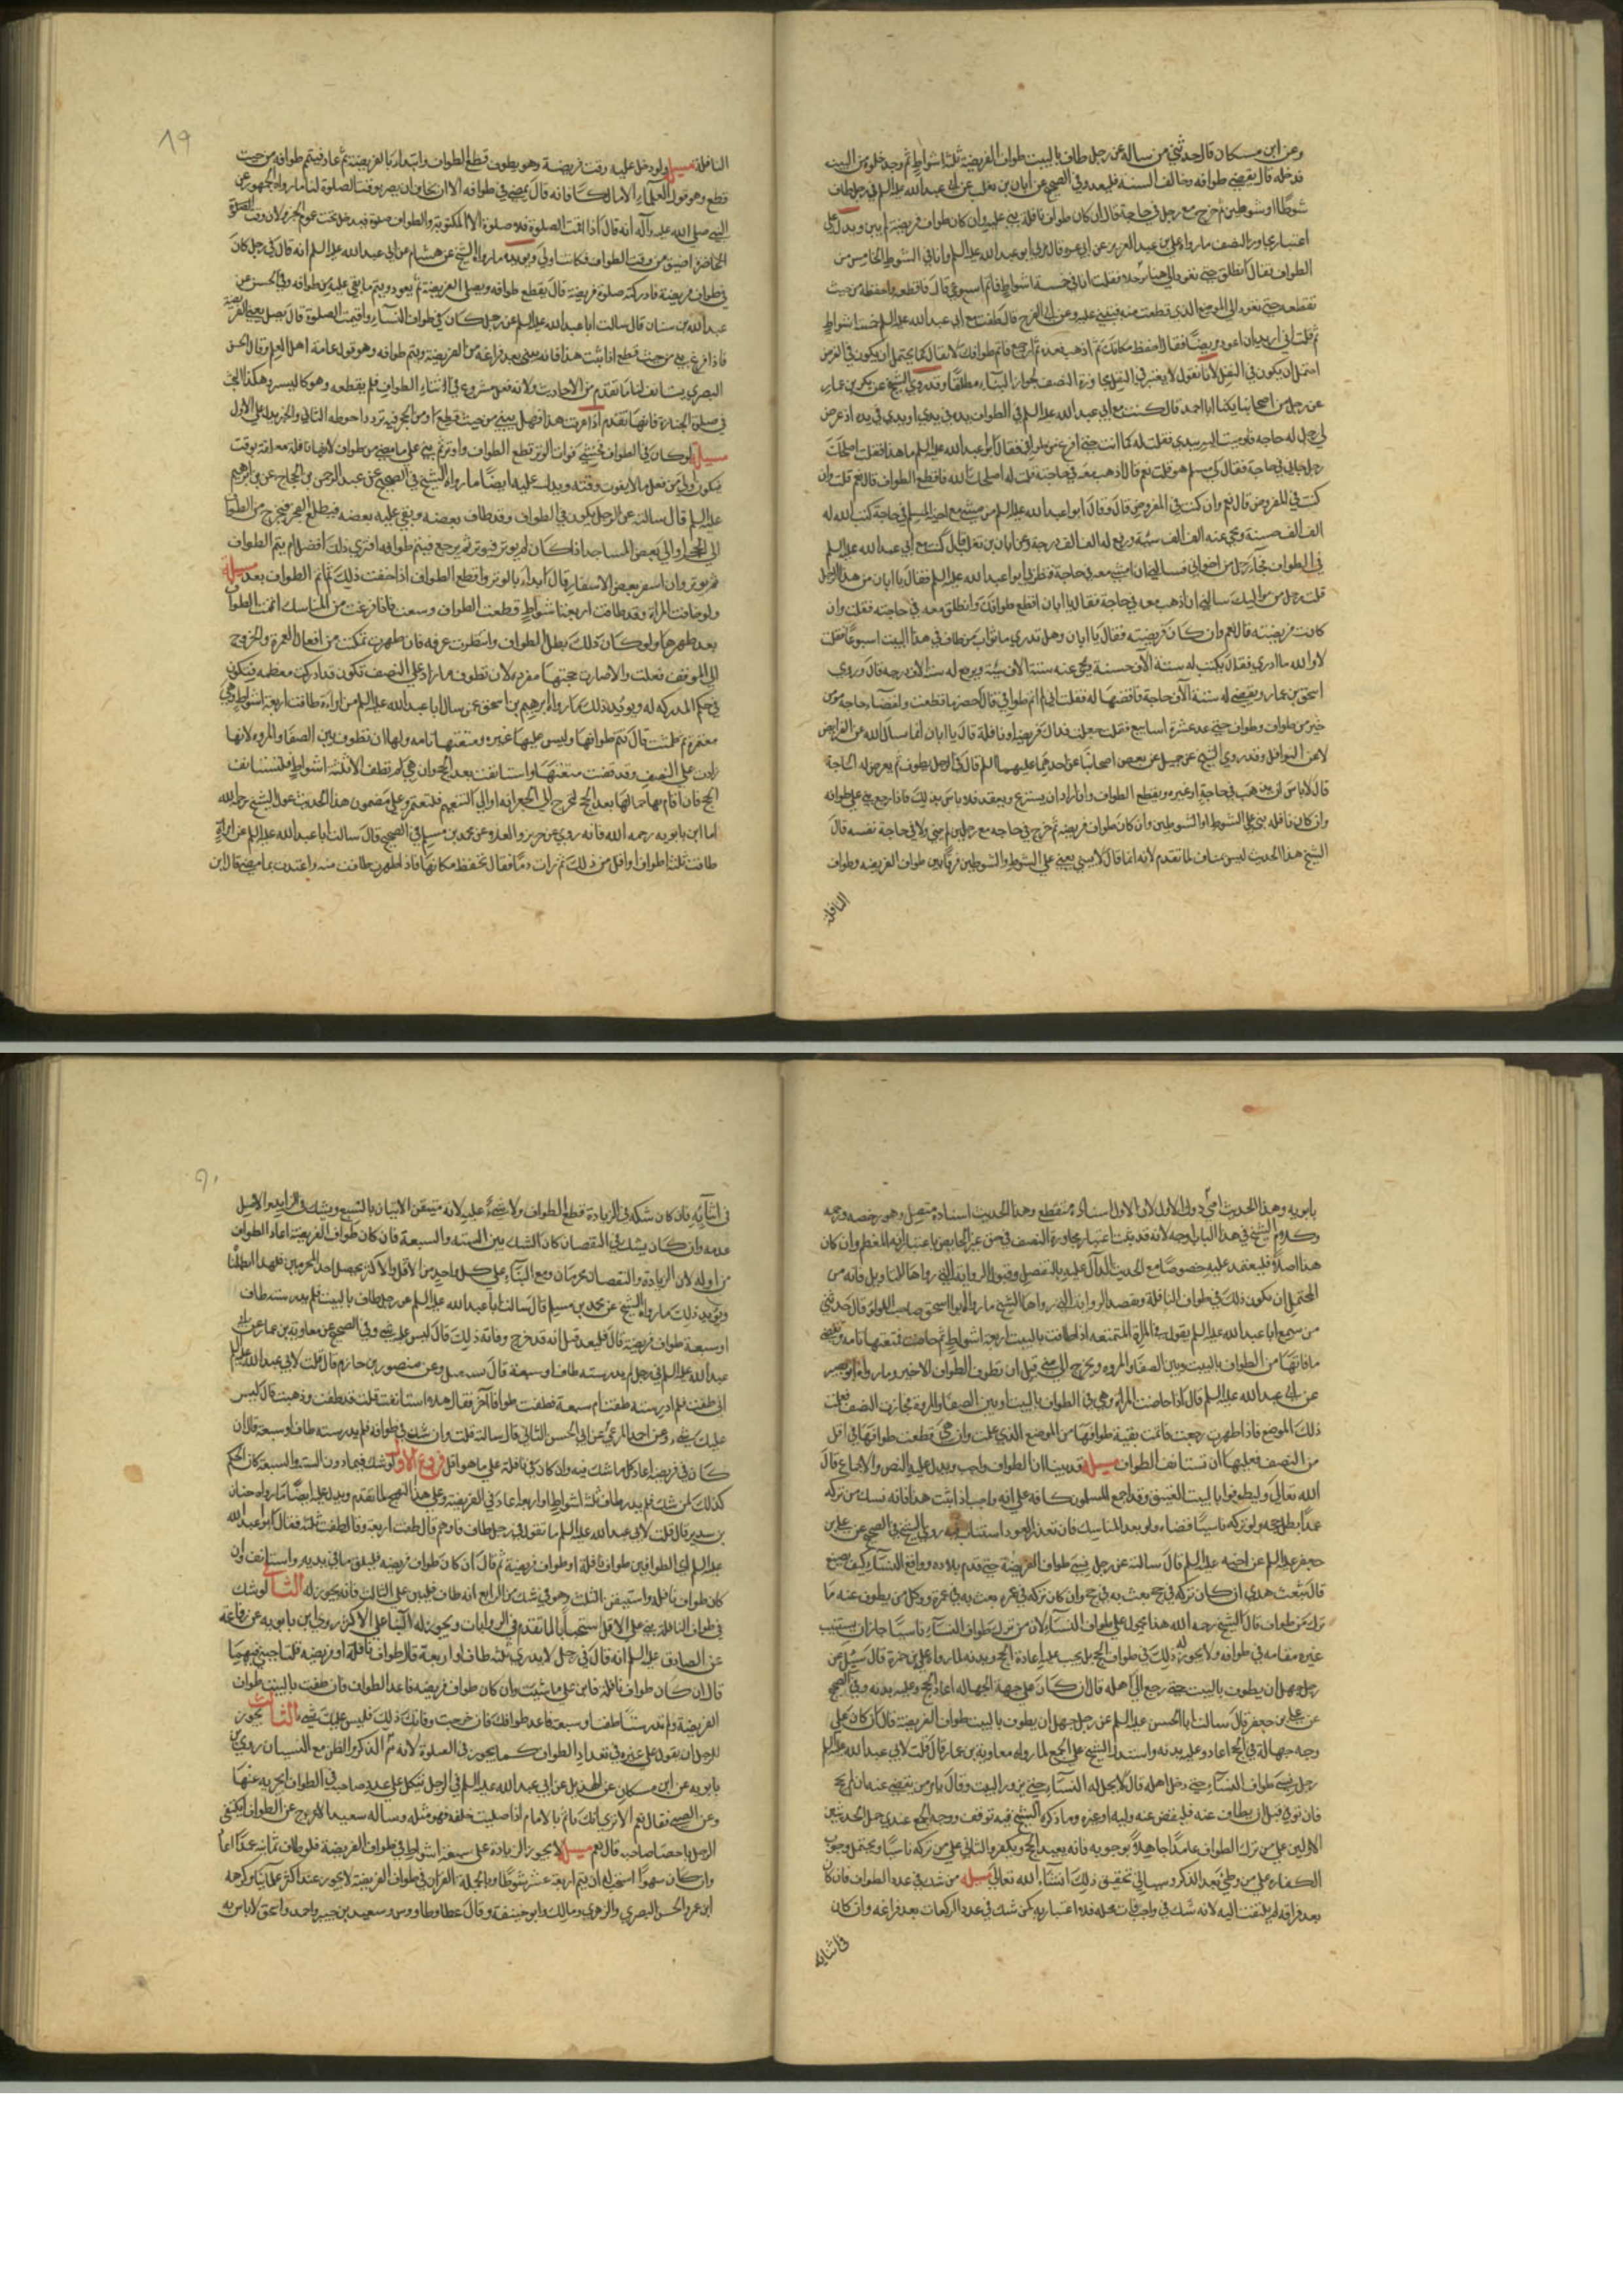 وعن ابن مسكان قال حدثني من ساله عن رجل طاف بالبيت طواف الفريضة ثلثة اشواط ثم وجد خلوة من البيت
فدخله قال يقضي طوافه وخالف السنة فليعد وفي الصحيح عن ابان بن تغلب عن ابي عبدالله عليه السلم في رجل طاف
شوطا او شوطين ثم خرج مع رجل في حاجة قال ان كان طواف نافلة بنى عليه وان كان طواف فريضة لم يبن ويدل على
اعتبار مجاوزة النصف ما رواه علي بن عبد العزيز عن ابي عزة قال مر بي ابو عبد الله عليه السلم وانا في الشوط الخامس من
الطواف فقال لي انطلق حتى نعود الى ههنا رجلا فقلت انا في خمسة اشواط فاتم اسبوعي قال فاقطعه واحفظه من حيث
تقطعه حتى تعود الى الموضع الذي قطعت منه فتبني عليه وعن ابي الفرج قال طفت مع ابي عبد الله عليه السلم خمسة اشواط
ثم قلت اني اريد ان اعود مريضا فقال احفظ مكانك ثم اذهب فعده ثم ارجع فاتم طوافك لا يقال كما يحتمل ان يكون في الفرض
احتمل ان يكون في النفل لانا نقول لا يعتبر في النفل مجاوزة النصف لجواز البناء مطلقا وقد روى الشيخ عن سكين بن عمار
عن رجل من اصحابنا يكنى ابا احمد قال كنت مع ابي عبد الله عليه السلم في الطواف يده في يدي او يدي في يده اذ عرض
لي رجل له حاجة فاومات اليه بيدي فقلت له كما انت حتى افرغ من طوافي فقال ابو عبد الله عليه السلم ما هذا فقلت اصلحك
رجل جاءني في حاجة فقال لي مسلم هو قلت نعم قال اذهب معه في حاجته قلت له اصلحك الله فاقطع الطواف قال نعم قلت وان
كنت في المفروض قال نعم وان كنت في المفروض قال وقال ابو عبد الله عليه السلم من مشى مع اخيه المسلم في حاجة كتب الله له
الف الف حسنة ومحى عنه الف الف سيئة ورفع له الف الف درجة وعن ابان بن تغلب قال كنت مع ابي عبد الله عليه السلم
في الطواف فجاء رجل من اخواني فسالني ان امشي معه في حاجة ففطن بي ابو عبد الله عليه السلم فقال يا ابان من هذا الرجل
قلت رجل من مواليك سالني ان اذهب معه في حاجة فقال يا ابان اقطع طوافك وانطلق معه في حاجته فقلت وان
كانت فريضته قال نعم وان كان فريضته فقال يا ابان وهل تدري ما ثواب من طاف في هذا البيت اسبوعا فقلت
لا والله ما ادري فقال يكتب له ستة الاف حسنة ويمحى عنه ستة الاف سيئة ويرفع له ستة الاف درجة قال وروى
اسحق بن عمار ويقضي له ستة الاف حاجة
خير من طواف وطواف حتى عد عشرة اسابيع فقلت جعلت فداك فريضة او نافلة قال يا ابان انما يسال الله عن الفرايض
لا عن النوافل وقد روى الشيخ عن جميل عن بعض اصحابنا عن احدهما عليهما السلم قال في الرجل يطوف ثم يعرض له الحاجة
قال لا باس ان يذهب في حاجته او غيره ويقطع الطواف واذا اراد ان يستريح ويقعد فلا باس بذلك فاذا رجع بنى على طوافه
وان كان نافلة بنى على الشوط او الشوطين وان كان طواف فريضة ثم خرج في حاجة مع رجل لم يبن ولا في حاجة نفسه قال
الشيخ هذا الحديث ليس بمناف لما تقدم لانه انما قال لا يبني يعني على الشوط والشوطين فرقا بين طواف الفريضة وطواف
النافلة
١٩
النافلة مسيلة ولو دخل عليه وقت فريضة وهو يطوف قطع الطواف وابتداء بالفريضة ثم عاد فيتم طوافه من حيث
قطع وهو قول العلماء الا مالكا فانه قال يمضي في طوافه الا ان يخاف ان يضر بوقت الصلوة لنا ما رواه الجمهور عن
النبي صلى الله عليه وآله انه قال اذا اقيمت الصلوة فلا صلوة الا المكتوبة والطواف صلوة فيدخل تحت عموم الخبر ولان وقت
الحاضرة اضيق من وقت الطواف فكانت اولى ويؤيده ما رواه الشيخ عن هشام عن ابي عبد الله عليه السلم انه قال في رجل كان
في طواف فريضة فادركته صلوة فريضة قال يقطع طوافه ويصلي الفريضة ثم يعود ويتم ما بقي عليه من طوافه وفي الحسن عن
عبد الله بن سنان قال سالت ابا عبد الله عليه السلم عن رجل كان في طواف النساء واقيمت الصلوة قال يصلي يعني الفريضة
فاذا فرغ بنى من حيث قطع اذا ثبت هذا فانه يبني بعد فراغه من الفريضة ويتم طوافه وهو قول عامة اهل العلم وقال الحسن
البصري يستانف لنا ما تقدم من الاحاديث ولانه فعل مشروع في اثناء الطواف فلم يقطعه وهو كاليسير وهكذا البحث
في صلوة الجنازة فانها تقدم اذا عرفت هذا فهل يبني من حيث قطع او من الحجر فيه تردد احوطه الثاني والخبر يدل على الاول
مسيلة لو كان في الطواف فخشي فوات الوتر قطع الطواف واوتر ثم بنى على ما مضى من طوافه لانها نافلة معلقة بوقت
فيكون اولى من فعل ما لا يفوت وقته ويدل عليه ايضا ما رواه الشيخ في الصحيح عن عبد الرحمن بن الحجاج عن ابي ابراهيم
عليه السلم قال سالته عن الرجل يكون في الطواف وقد طاف بعضه وبقي عليه بعضه فيطلع الفجر فيخرج من الطواف
الى الحجر او الى بعض المساجد اذا كان لم يوتر فيوتر ثم يرجع فيتم طوافه افترى ذلك افضل ام يتم الطواف
ثم يوتر وان اسفر بعض الاسفار قال ابداء بالوتر واقطع الطواف اذا خفت ذلك ثم اتم الطواف بعد مسيلة
ولو حاضت المراة وقد طافت اربعة اشواط قطعت الطواف وسعت فاذا فرغت من المناسك اتمت الطواف
بعد طهرها ولو كان دون ذلك بطل الطواف وانتظرت عرفة فان طهرت وتمكنت من افعال العمرة والخروج
الى الموقف فعلت والا صارت حجتها مفردة لان تطوف ما زاد على النصف تكون قد ادركت معظمه فيكون
في حكم المدركه له ويؤيد ذلك ما رواه ابرهيم بن اسحق عن سال ابا عبد الله عليه السلم عن امراة طافت اربعة اشواط وهي
معتمرة ثم طمثت قال تتم طوافها وليس عليها غيره ومتعتها تامة ولها ان تطوف بين الصفا والمروة لانها
زادت على النصف وقد قضت متعتها واستانفت بعد الحج وان هي لم تطف الا ثلثة اشواط فلتستانف
الحج فان اقام بها جمالها بعد الحج فلتخرج الى الجعرانة او الى التنعيم فلتعتمر وعلى مضمون هذا الحديث عمل الشيخ رحمه الله
اما ابن بابويه رحمه الله فانه روى عن حريز والعلاء عن محمد بن مسلم في الصحيح قال سالت ابا عبد الله عليه السلم عن امراة
طافت ثلثة اطواف او اقل من ذلك ثم رات دما فقال تحفظ مكانها فاذا طهرت طافت منه واعتدت بما مضى قال ابن
بابويه وهذا الحديث افتي دون الاول لان الاول اسناده منقطع وهذا الحديث اسناده متصل وهو رخصة ورحمة
وكلام الشيخ في هذا الباب اوجه لانه قد ثبت اعتبار مجاوزة النصف في حق غير الحايض باعتبار انه المعظم وان كان
هذا اصلا فليعتمد عليه خصوصا مع الحديث الدال عليه بالتفصيل وقبول الرواية التي رواها للتاويل فانه من
المحتمل ان يكون ذلك في طواف النافلة ويعضد الرواية التي رواها الشيخ ما رواه ابو اسحق صاحب اللولو قال حدثني
من سمع ابا عبد الله عليه السلم يقول في المراة المتمتعة اذا طافت بالبيت اربعة اشواط ثم حاضت فمتعتها تامة وتقضي
ما فاتها من الطواف بالبيت وبين الصفا والمروة وتخرج الى منى قبل ان تطوف الطواف الاخير وما رواه ابو بصير
عن ابي عبد الله عليه السلم قال اذا حاضت المراة وهي في الطواف بالبيت او بين الصفا والمروة فجاوزت النصف فعلمت
ذلك الموضع فاذا طهرت رجعت فاتمت بقية طوافها من الموضع الذي علمت وان هي قطعت طوافها في اقل
من النصف فعليها ان تستانف الطواف مسيلة قد بينا ان الطواف واجب ويدل عليه النص والاجماع قال
الله تعالى وليطوفوا بالبيت العتيق وقد اجمع المسلمون كافة على انه واجب اذا ثبت هذا فانه نسك من تركه
عمدا بطل حجه ولو تركه ناسيا قضاه ولو بعد المناسك فان تعذر العود استناب فيه روى الشيخ في الصحيح عن علي بن
جعفر عليه السلم عن اخيه عليه السلم قال سالته عن رجل نسي طواف الفريضة حتى قدم بلاده وواقع النساء كيف يصنع
قال يبعث بهدي ان كان تركه في حج بعث به في حج وان كان تركه في عمرة بعث به في عمرة ووكل من يطوف عنه ما
ترك من طوافه قال الشيخ رحمه الله هذا محمول على طواف النساء لان من ترك طواف النساء ناسيا جاز ان يستنيب
غيره مقامه في طوافه ولا يجوز له ذلك في طواف الحج بل يجب عليه اعادة الحج وبدنة لما رواه علي بن حمزة قال سئل عن
رجل جهل ان يطوف بالبيت حتى رجع الى اهله قال ان كان على جهة الجهالة اعاد الحج وعليه بدنة وفي الصحيح
عن علي بن جعفر قال سالت ابا الحسن عليه السلم عن رجل جهل ان يطوف بالبيت طواف الفريضة قال ان كان على
وجه جهالة في الحج اعاد وعليه بدنة واستدل الشيخ على الجمع لما رواه معاوية بن عمار قال قلت لابي عبد الله عليه السلم
رجل نسي طواف النساء حتى دخل اهله قال لا يحل له النساء حتى يزور البيت وقال يامر من يقضي عنه ان لم يحج
فان توفي قبل ان يطاف عنه فليقض عنه وليه او غيره وما ذكره الشيخ فيه توقف ووجه الجمع عندي حمل الحديثين
الاولين على من ترك الطواف عامدا جاهلا بوجوبه فانه يعيد الحج ويكفر والثاني على من تركه ناسيا ويحتمل وجوب
الكفارة على من وطئ بعد الذكر وسياتي تحقيق ذلك انشاء الله تعالى مسيلة من شك في عدد الطواف فان كان
بعد فراغه لم يلتفت اليه لانه شك في واجب فات محله فلا اعتبار به كمن شك في عدد الركعات بعد فراغه وان كان
في اثنائه
٩٠
في اثنائه فان كان شكه في الزيادة قطع الطواف ولا شيء عليه لانه متيقن الاتيان بالسبع ويشك في الزايد والاصل
عدمه وان كان يشك في النقصان كان الشك بين الستة والسبعة فان كان طواف الفريضة اعاد الطواف
من اوله لان الزيادة والنقصان محرمان ومع البناء على كل واحد من الاقل والاكثر يحصل احد المحرمين فلهذا ابطلنا
ويؤيد ذلك ما رواه الشيخ عن محمد بن مسلم قال سالت ابا عبد الله عليه السلم عن رجل طاف بالبيت فلم يدر ستة طاف
او سبعة طواف فريضة قال فليعد قيل انه قد خرج وفاته ذلك قال ليس عليه شيء وفي الصحيح عن معاوية بن عمار عن ابي
عبد الله عليه السلم في رجل لم يدر ستة طاف او سبعة قال يستقبل وعن منصور بن حازم قال قلت لابي عبد الله عليه السلم
اني طفت فلم ادر ستة طفت ام سبعة فطفت طوافا آخر فقال هلا استانفت قلت قد طفت وذهبت قال ليس
عليك شيء وعن احمد المرعي عن ابي الحسن الثاني قال سالته قلت وان شك في طوافه فلم يدر ستة طاف او سبعة قال ان
كان في فريضة اعاد كل ما شك فيه وان كان في نافلة على ما هو اقل فروع الاول لو شك فيما دون الستة والسبعة كان الحكم
كذلك لمن شك فلم يدر طاف ثلثة اشواط او اربعا اعاد في الفريضة وعلى هذا النهج لما تقدم ويدل عليه ايضا ما رواه حنان
بن سدير قال قلت لابي عبد الله عليه السلم ما تقول في رجل طاف فاوهم قال طفت اربعة وقال طفت ثلثة فقال ابو عبد الله
عليه السلم اي الطوافين طواف نافلة او طواف فريضة ثم قال ان كان طواف فريضة فليلق ما في يديه وليستانف وان
كان طواف نافلة واستيقن الثلث وهو في شك من الرابع انه طاف فليبن على الثالث فانه يجوز له الثاني لو شك
في طواف النافلة بنى على الاقل استحبابا لما تقدم في الروايات ويجوز له البناء على الاكثر روى ابن بابويه عن رفاعة
عن الصادق عليه السلم انه قال في رجل لا يدري ثلثة طاف او اربعة قال طواف نافلة او فريضة قلت اجبني فيهما
قال ان كان طواف نافلة فابن على ما شئت وان كان طواف فريضة فاعد الطواف فان طفت بالبيت طواف
الفريضة ولم تدر ستة طفت او سبعة فاعد طوافك فان خرجت وفاتك ذلك فليس عليك شيء الثالث يجوز
للرجل ان يعول على غيره في تعداد الطواف كما يجوز في الصلوة لانه يثمر الذكر والظن مع النسيان روى ابن
بابويه عن ابن مسكان عن الهذيل عن ابي عبد الله عليه السلم في الرجل يتكل على عدد صاحبه في الطواف ايجزيه عنها
وعن الصبي فقال نعم الا ترى انك تاتم بالامام اذا صليت خلفه فهو مثله وساله سعيد الاعرج عن الطواف ايكتفي
الرجل باحصاء صاحبه قال نعم مسيلة لا يجوز الزيادة على سبعة اشواط في طواف الفريضة فلو طاف ثمانية عمدا اعاد
وان كان سهوا استحب له ان يتم اربعة عشر شوطا وبالجملة القران في طواف الفريضة لا يجوز عند اكثر علمائنا وكرهه
ابن عمر والحسن البصري والزهري ومالك وابو حنيفة وقال عطا وطاووس وسعيد بن جبير واحمد واسحق لا باس به